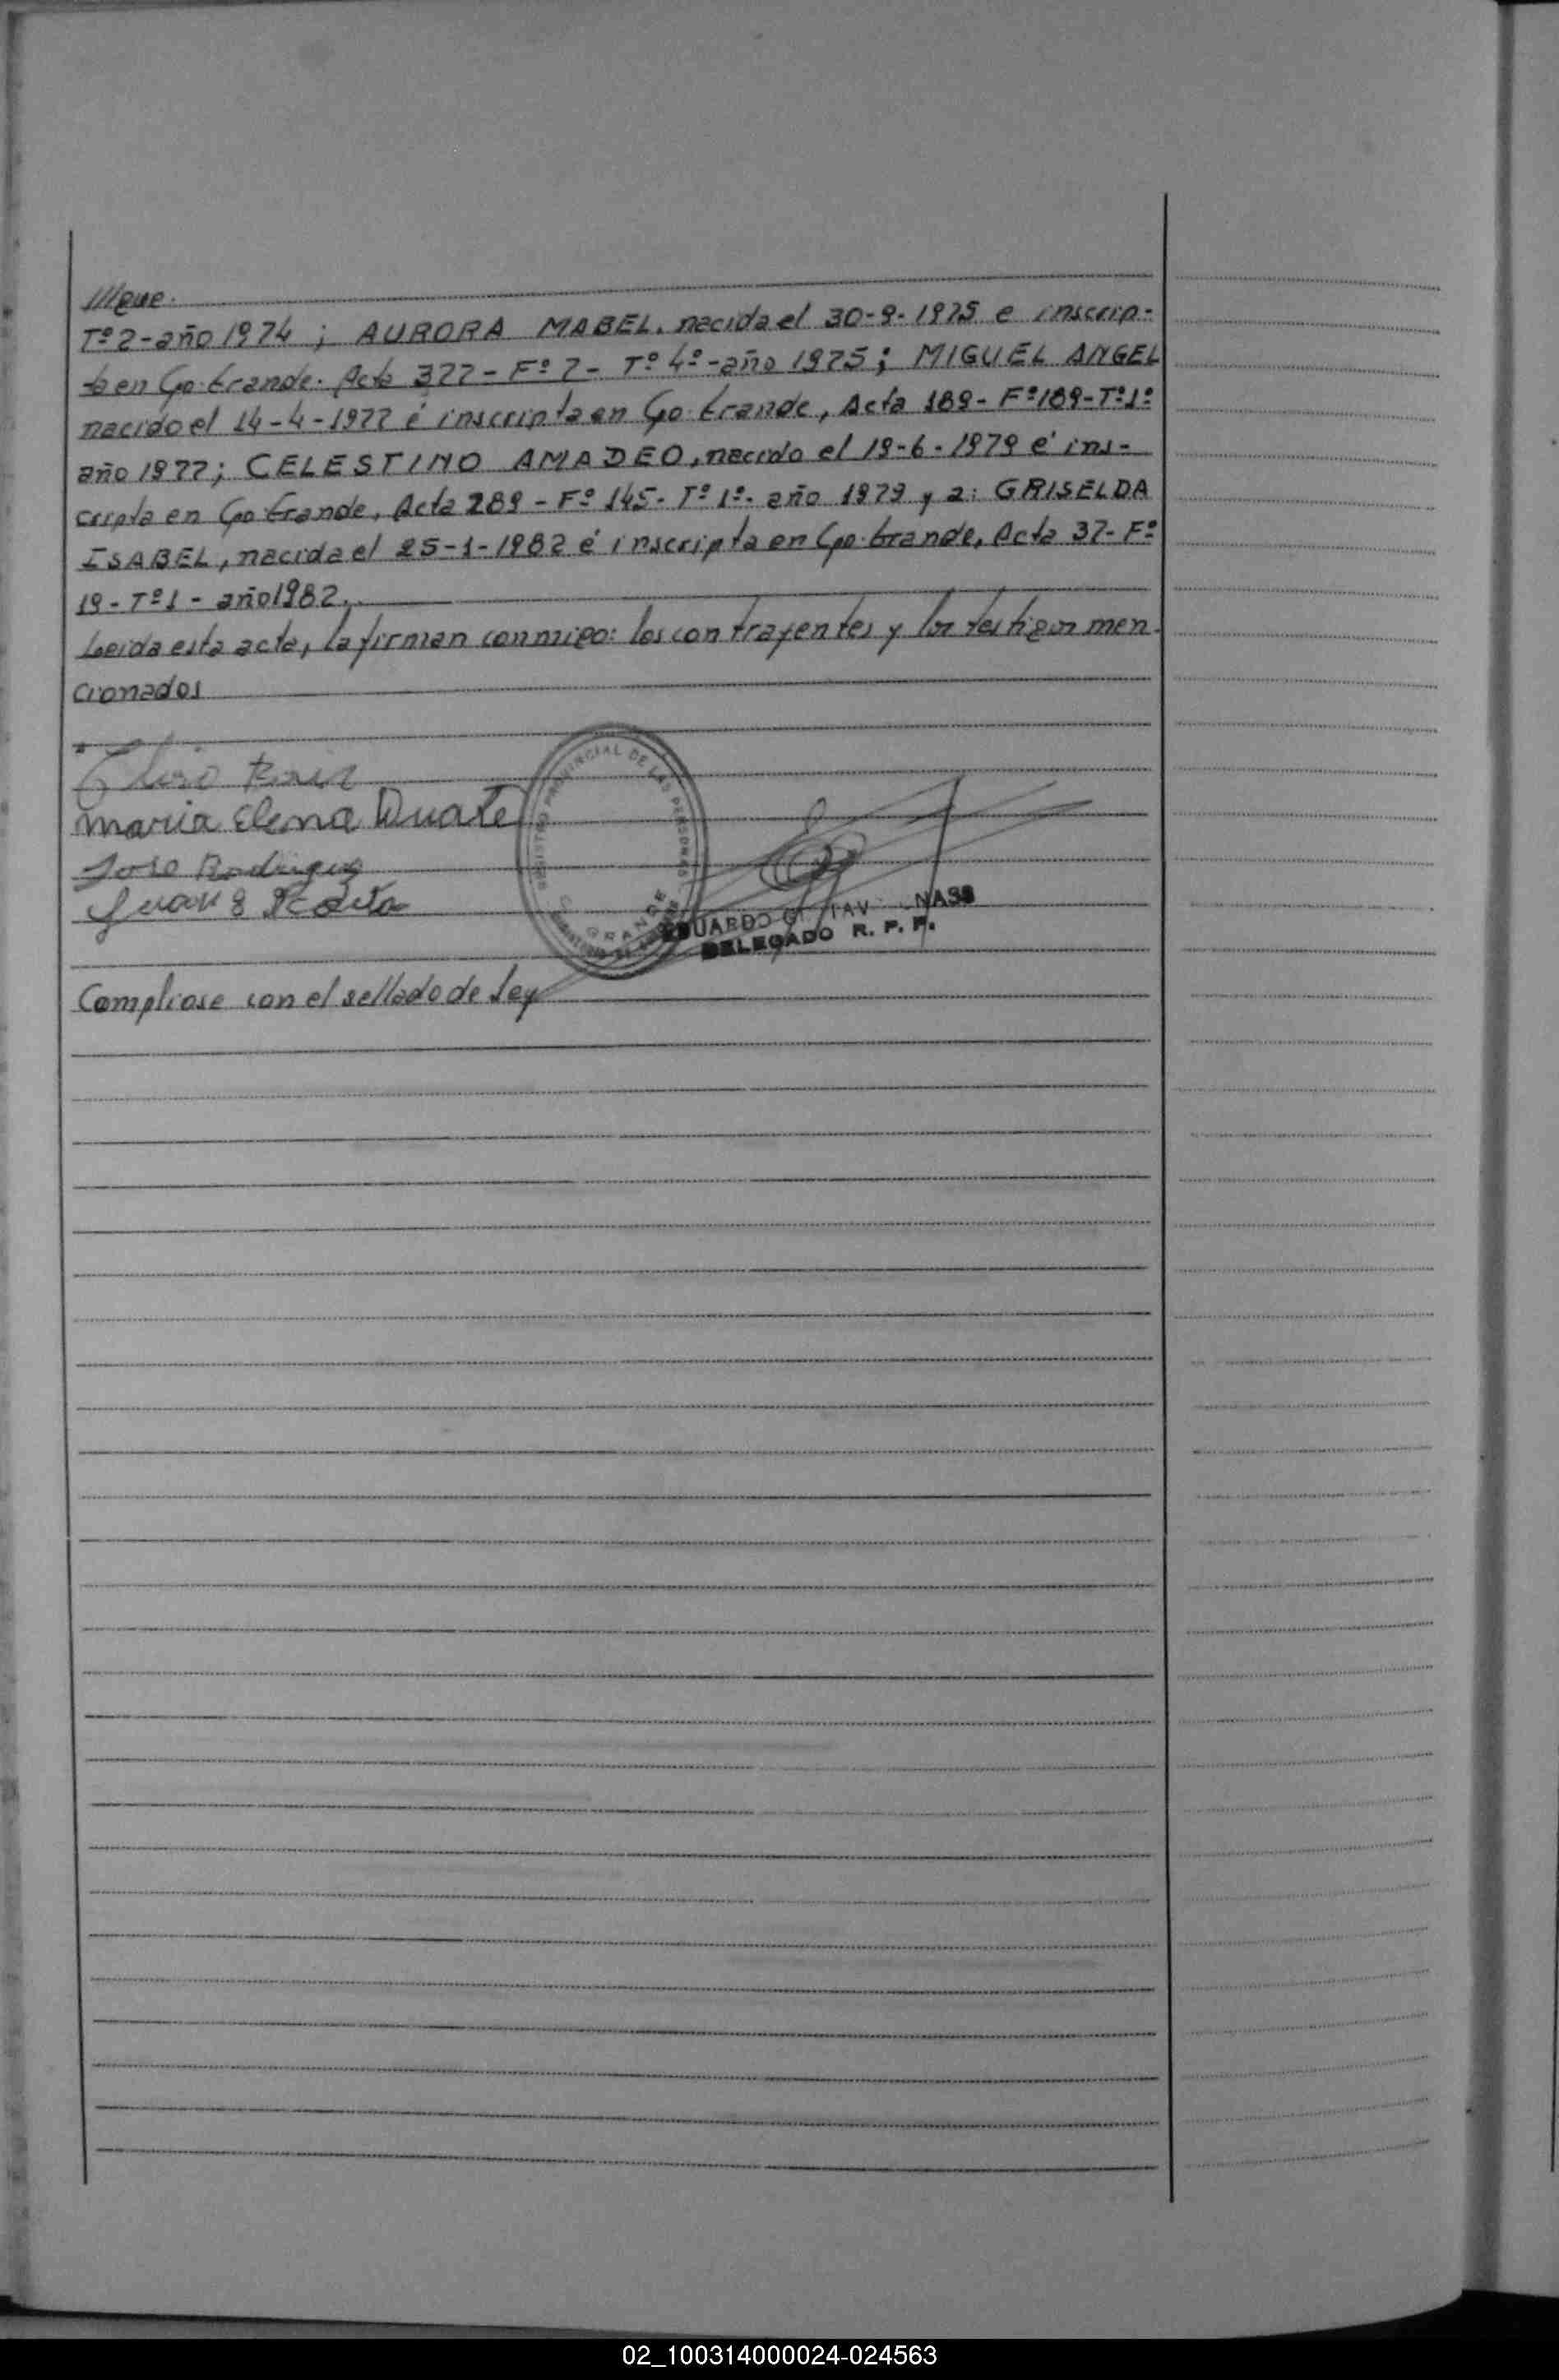 ///gue.
Tº 2-año 1974 ; AURORA MABEL, nacida el 30-9-1975 e inscrip-
ta en Cpo. Grande. Acta 377 - Fº 7 - Tº 4º - año 1975 ; MIGUEL ANGEL
nacido el 14-4-1977 é inscripta en Cpo. Grande, Acta 189 - Fº 189 - Tº 1º
año 1977; CELESTINO AMADEO, nacido el 19-6-1979 é ins-
cripta en Cpo Grande, Acta 289 - Fº 145 - Tº 1º - año 1979 y a: GRISELDA
ISABEL, nacida el 25-1-1982 é inscripta en Cpo. Grande, Acta 37 - Fº
19 - Tº 1 - año 1982.
Leida esta acta, la firman conmigo: los contrayentes y los testigos men-
cionados
Maria Elena Duate
Jose Rodriguez
Juan
REGISTRO PROVINCIAL DE LAS PERSONAS
GRANDE
EDUARDO
DELEGADO R. P. P.
Compliose con el sellado de Ley
02_100314000024-024563